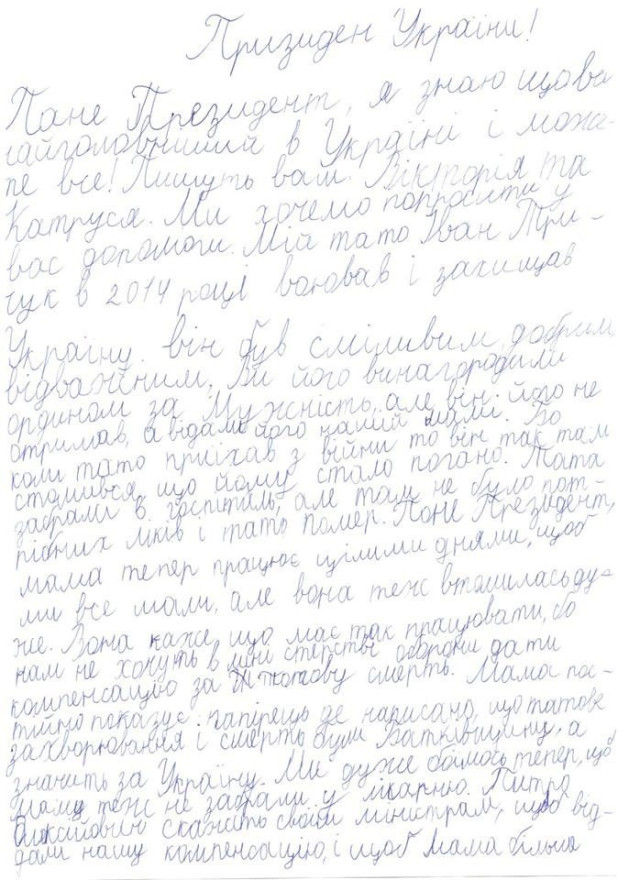 Призиден України!
Пане Президент, я знаю що ви
найголовніший в Україні і може-
те все! Пишуть вам Вікторія та
Катруся. Ми хочемо попросити у
вас допомоги. Мій тато Іван Три-
чук в 2014 році воював і захищав
Україну. він був сміливим, добрим,
відважним. Ви його винагородили
ордином за Мужність, але він його не
отримав, а відали його нашій мамі. Бо
коли тато приїхав з війни то він так там
стомився, що йому стало погано. Тата
забрали в госпіталь, але там не було пот-
рібних ліків і тато помер. Пане Президент,
мама тепер працює цілими днями, щоб
ми все мали, але вона теж втомилась ду-
же. Вона каже, що має так працювати, бо
нам не хочуть в міністерстві оборони дати
компенсацію за татову смерть. Мама пос-
тійно показує папірець де написано, що татове
захворювання і смерть були Батківщину, а
значить за Україну. Ми дуже боїмось тепер, щоб
маму теж не забрали у лікарню. Питро
Олексійович скажіть своїм міністрам, щоб від-
дали нашу компенсацію, і щоб мама більше